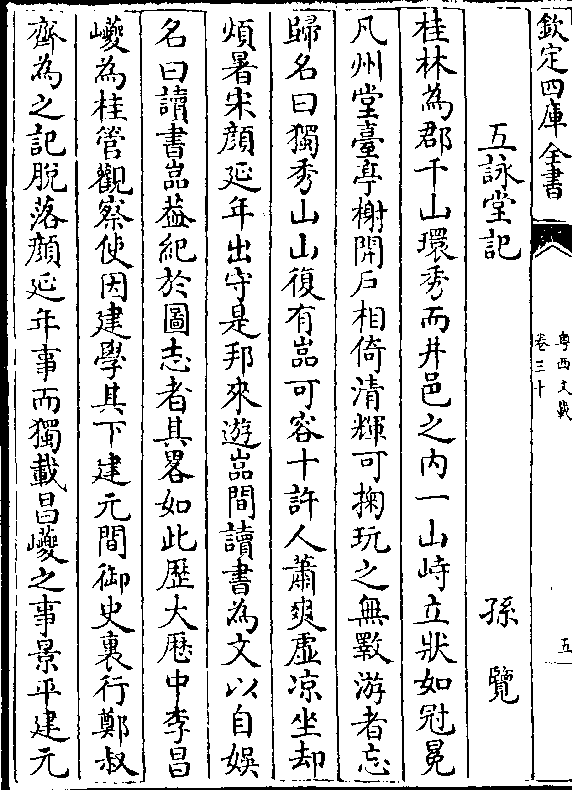 欽定四庫全書
粤西文載
卷三十
五
五詠堂記
孫覽
桂林為郡千山環秀而井邑之内一山峙立狀如冠冕
凡州堂臺亭榭開户相倚清輝可掬玩之無斁游者忘
歸名曰獨秀山山復有嵓可容十許人蕭爽虚凉坐却
煩暑宋顔延年出守是邦來遊嵓間讀書為文以自娯
名曰讀書嵓葢紀於圖志者其畧如此歴大厯中李昌
巙為桂管觀察使因建學其下建元間御史裏行鄭叔
齊為之記脱落顔延年事而獨載昌巙之事景平建元